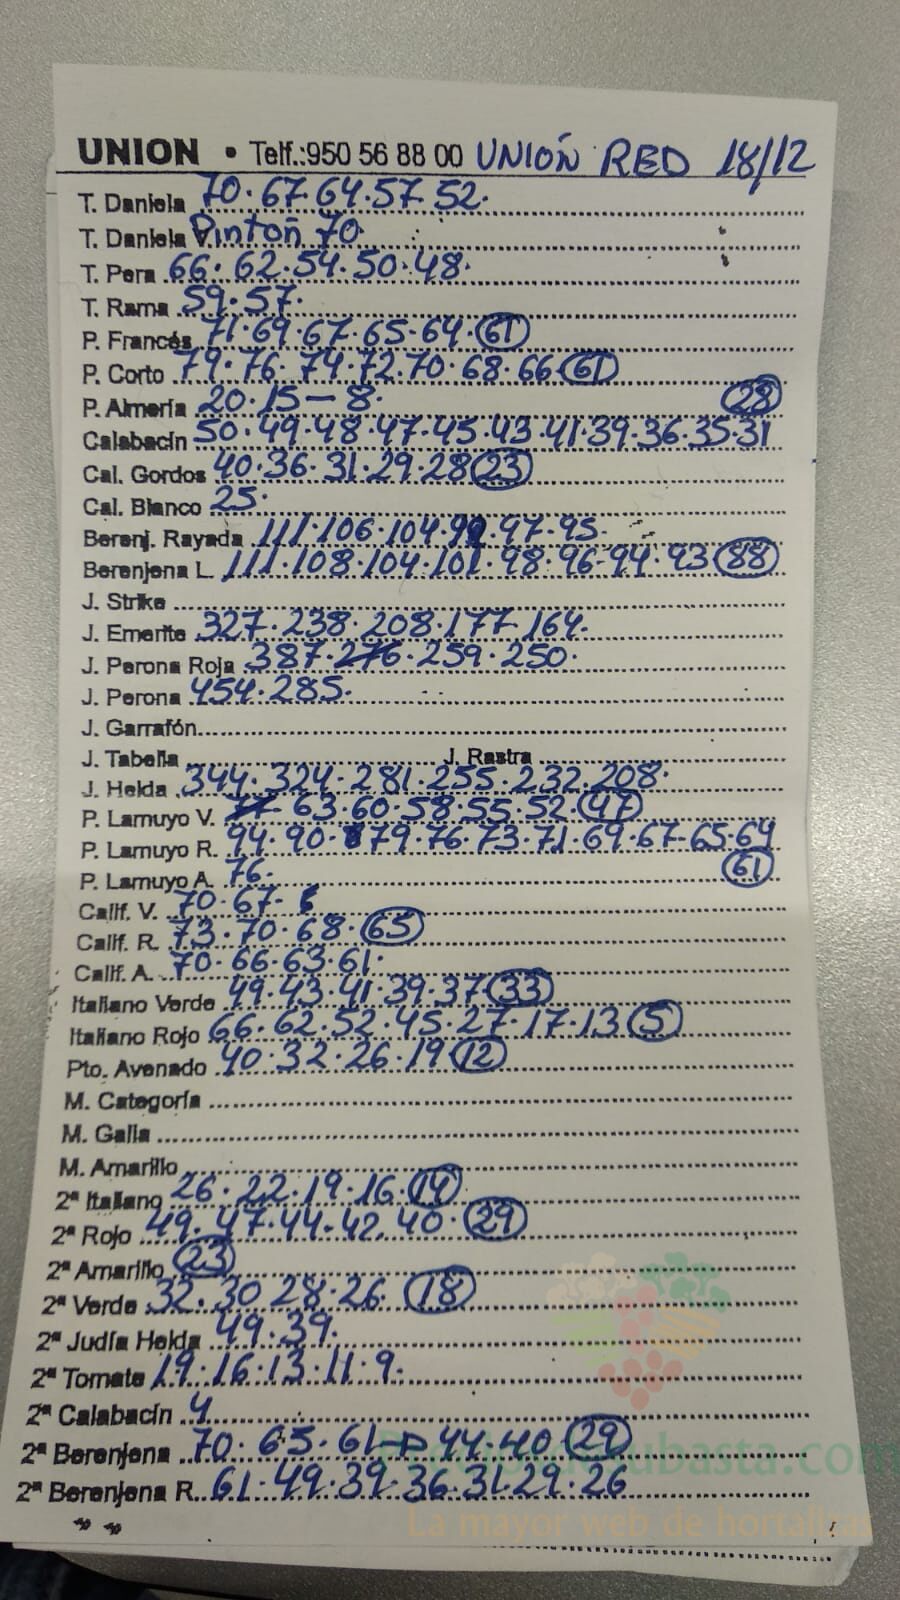 UNION • Telf.:950 56 88 00 UNIOÑ RED 18/12
T. Daniela 70·67·64·57·52·
T. Daniela V. Pintoñ 70·
T. Pera 66·62·54·50·48·
T. Rama 59·57·
P. Francés 71·69·67·65-64·61
P. Corto 79·76·74·72·70·68·66 61
P. Almería 20·15—8· 28
Calabacín 50·49·48·47·45·43·41·39·36·35·31
Cal. Gordos 40·36·31·29·28 23
Cal. Blanco 25·
Berenj. Rayada 111·106·104·99·97·95·
Berenjena L. 111·108·104·101·98·96-94·93 88
J. Strike
J. Emerite 327·238·208·177·164·
J. Perona Roja 387·276·259·250·
J. Perona 454·285·
J. Garrafón
J. Tabella J. Rastra
J. Helda 344·324·281·255·232·208·
P. Lamuyo V. 63·60·58·55·52·47
P. Lamuyo R. 94·90·879·76·73·71·69·67-65·64
P. Lamuyo A. 76· 61
Calif. V. 70·67-
Calif. R. 73·70·68·65
Calif. A. 70·66·63·61·
Italiano Verde 49·43·41·39·37·33
Italiano Rojo 66·62·52·45·27·17·13 5
Pto. Avenado 40·32·26·19 12
M. Categoría
M. Galia
M. Amarillo
2ª Italiano 26·22·19·16·14
2ª Rojo 49·47·44·42·40·29
2ª Amarillo 23
2ª Verde 32·30 28·26· 18
2ª Judía Helda 49·39·
2ª Tomate 19·16·13·11·9·
2ª Calabacín 4
2ª Berenjena 70·65·61 44·40 29
2ª Berenjena R. 61·49·39·36·31·29·26
Preciosdesubasta.com
La mayor web de hortalizas